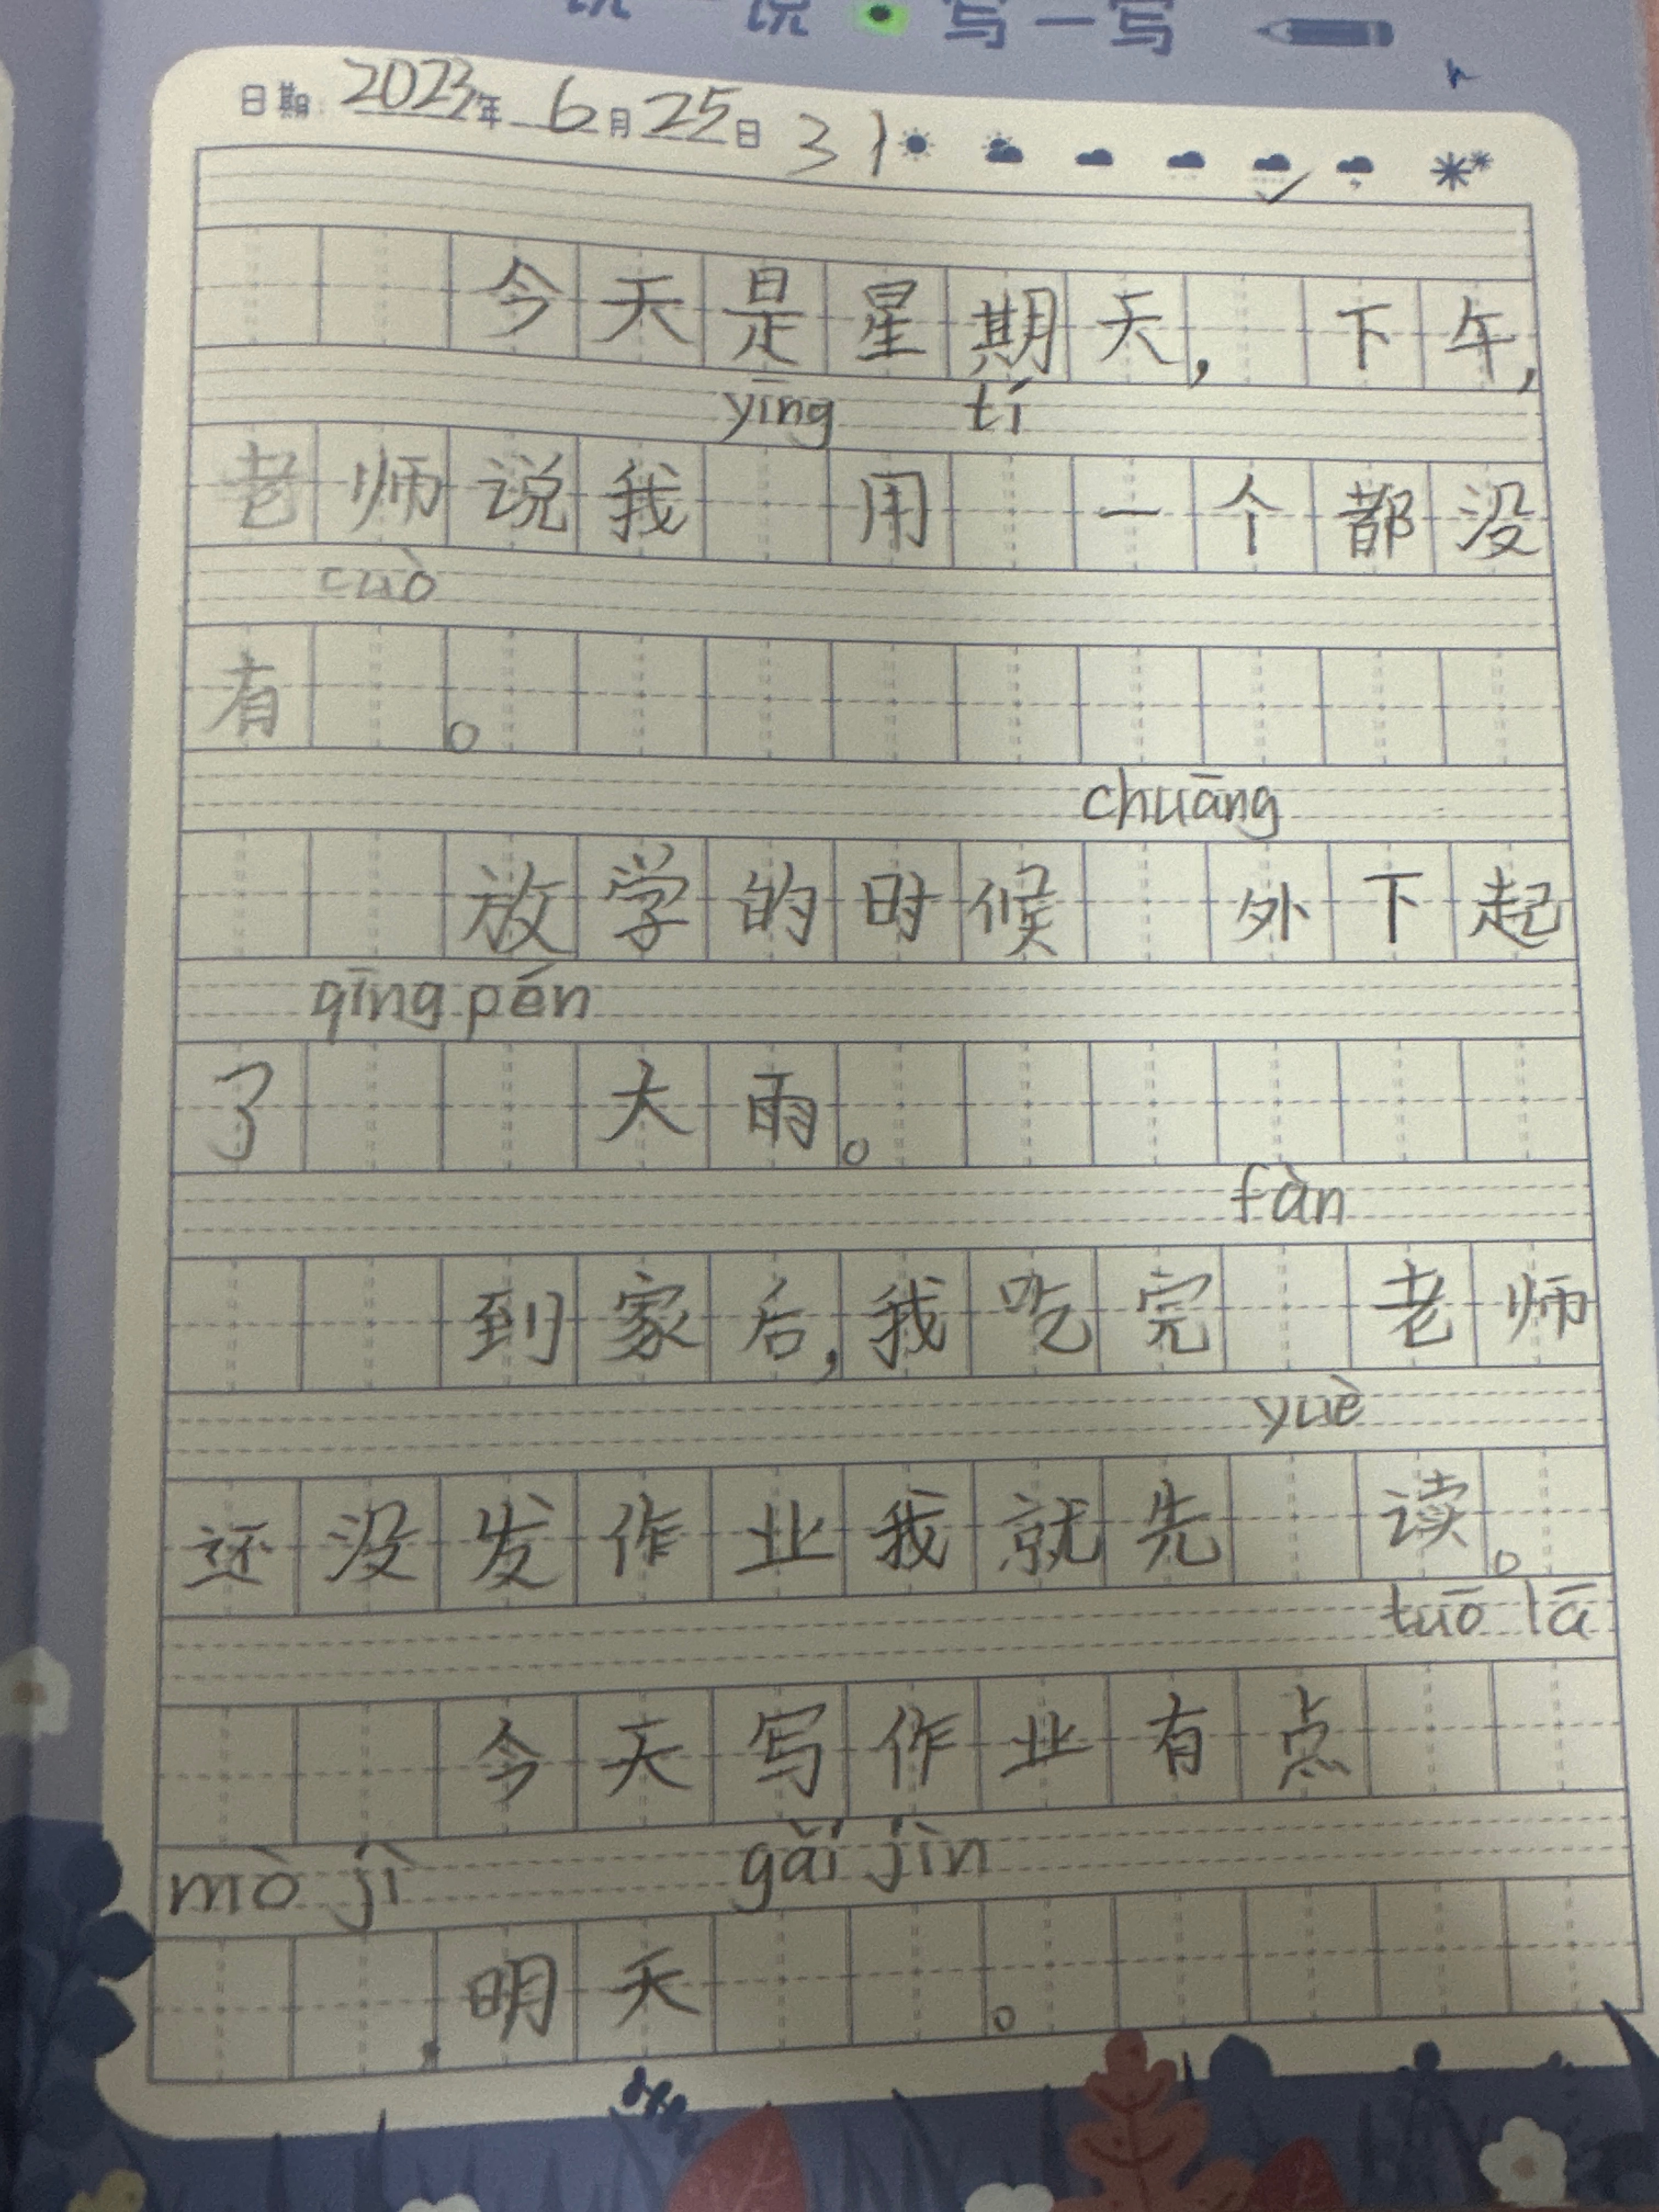 说一说 写一写
日期：2023年 6月25日 31
今天是星期天，下午，
yīng tí
老师说我 用 一个都没
cuò
有 。
chuāng
放学的时候 外下起
qīng pén
了 大雨。
fàn
到家后，我吃完 老师
yuè
还没发作业我就先 读。
tuō lā
今天写作业有点
mò jì gǎi jìn
，明天 。